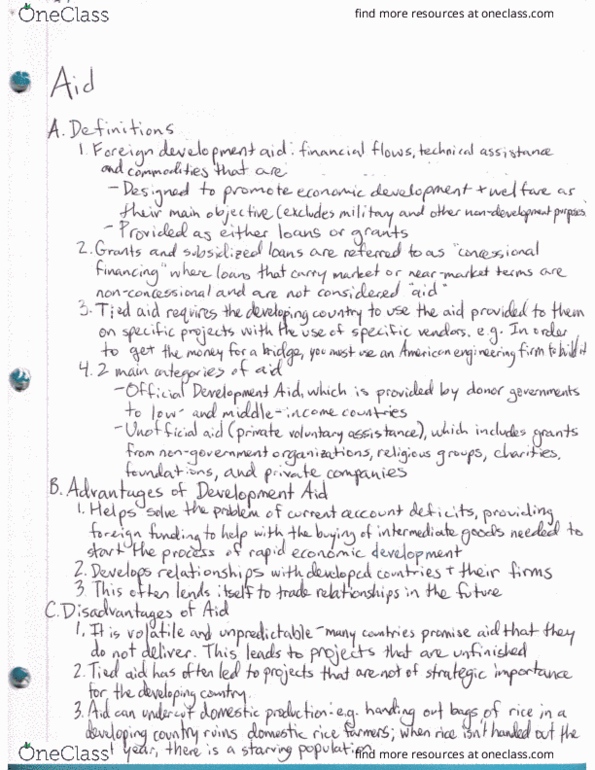 OneClass
find more resources at oneclass.com
Aid
A. Definitions
1. Foreign development aid: financial flows, technical assistance
and commodities that are
- Designed to promote economic development + welfare as
their main objective (excludes military and other non-development purposes
- Provided as either loans or grants
2. Grants and subsidized loans are referred to as "concessional
financing" where loans that carry market or near-market terms are
non-concessional and are not considered "aid"
3. Tied aid requires the developing country to use the aid provided to them
on specific projects with the use of specific vendors. e.g. In order
to get the money for a bridge, you must use an American engineering firm to build it
4. 2 main categories of aid
- Official Development Aid, which is provided by donor governments
to low- and middle-income countries
- Unofficial aid (private voluntary assistance), which includes grants
from non-government organizations, religious groups, charities,
foundations, and private companies
B. Advantages of Development Aid
1. Helps solve the problem of current account deficits, providing
foreign funding to help with the buying of intermediate goods needed to
start the process of rapid economic development
2. Develops relationships with developed countries + their firms
3. This often lends itself to trade relationships in the future
C. Disadvantages of Aid
1. It is volatile and unpredictable - many countries promise aid that they
do not deliver. This leads to projects that are unfinished
2. Tied aid has often led to projects that are not of strategic importance
for the developing country.
3. Aid can undercut domestic production - e.g. handing out bags of rice in a
developing country ruins domestic rice farmers; when rice isn't handed out the
year, there is a starving population.
OneClass
find more resources at oneclass.com